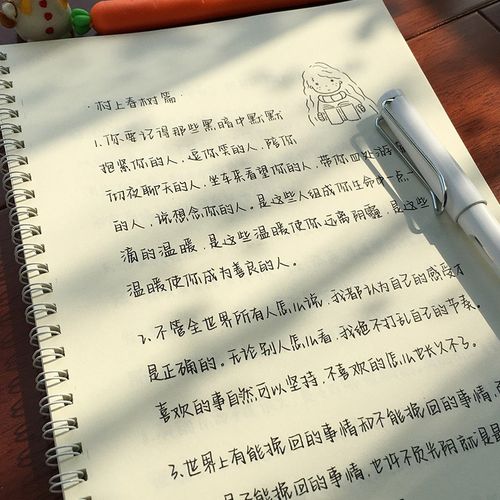 ·村上春树篇·
1.你要记得那些黑暗中默默
抱紧你的人,逗你笑的人,陪你
彻夜聊天的人,坐车来看望你的人,带你四处游
的人,说想念你的人。是这些人组成你生命中一点一
滴的温暖,是这些温暖使你远离阴霾,是这些
温暖使你成为善良的人。
2.不管全世界所有人怎么说,我都认为自己的感受才
是正确的。无论别人怎么看,我绝不打乱自己的节奏。
喜欢的事自然可以坚持,不喜欢的怎么也长久不了。
3.世界上有能挽回的事情和不能挽回的事情,
是不能挽回的事情,也许不负光阴就是